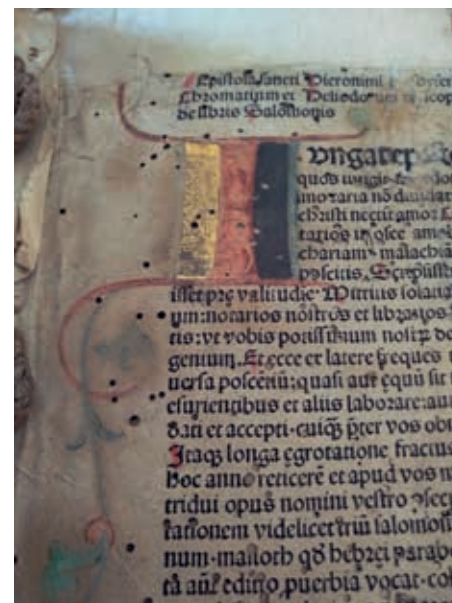 Epistola sancti Hieronimi
Chromatium et Heliodorum episcop
de libris Salomonis
Vngat ep
quos iungit
imo carta nō diuidat
christi nectit amor
tarios in osee amos
chariam malachiā
poscitis. Scripsisse
isset pre valitudīe. Mittitis solatia
um: notarios nostros et librarios
tis: vt vobis potissimum nostꝝ de
genium. Et ecce ex latere freques
uersa poscētiū: quasi aut equū sit
esurientibus et aliis laborare: aut
dati et accepti. cuiqꝫ p̄ter vos ob
Itaqꝫ longa egrotatione fractus
hoc anno reticerē et apud vos m
tridui opus nomini vestro ꝯsec
tationem videlicet triū salomon
num. masloth qd̄ hebrei parabo
tā aūt editio, puerbia vocat. co